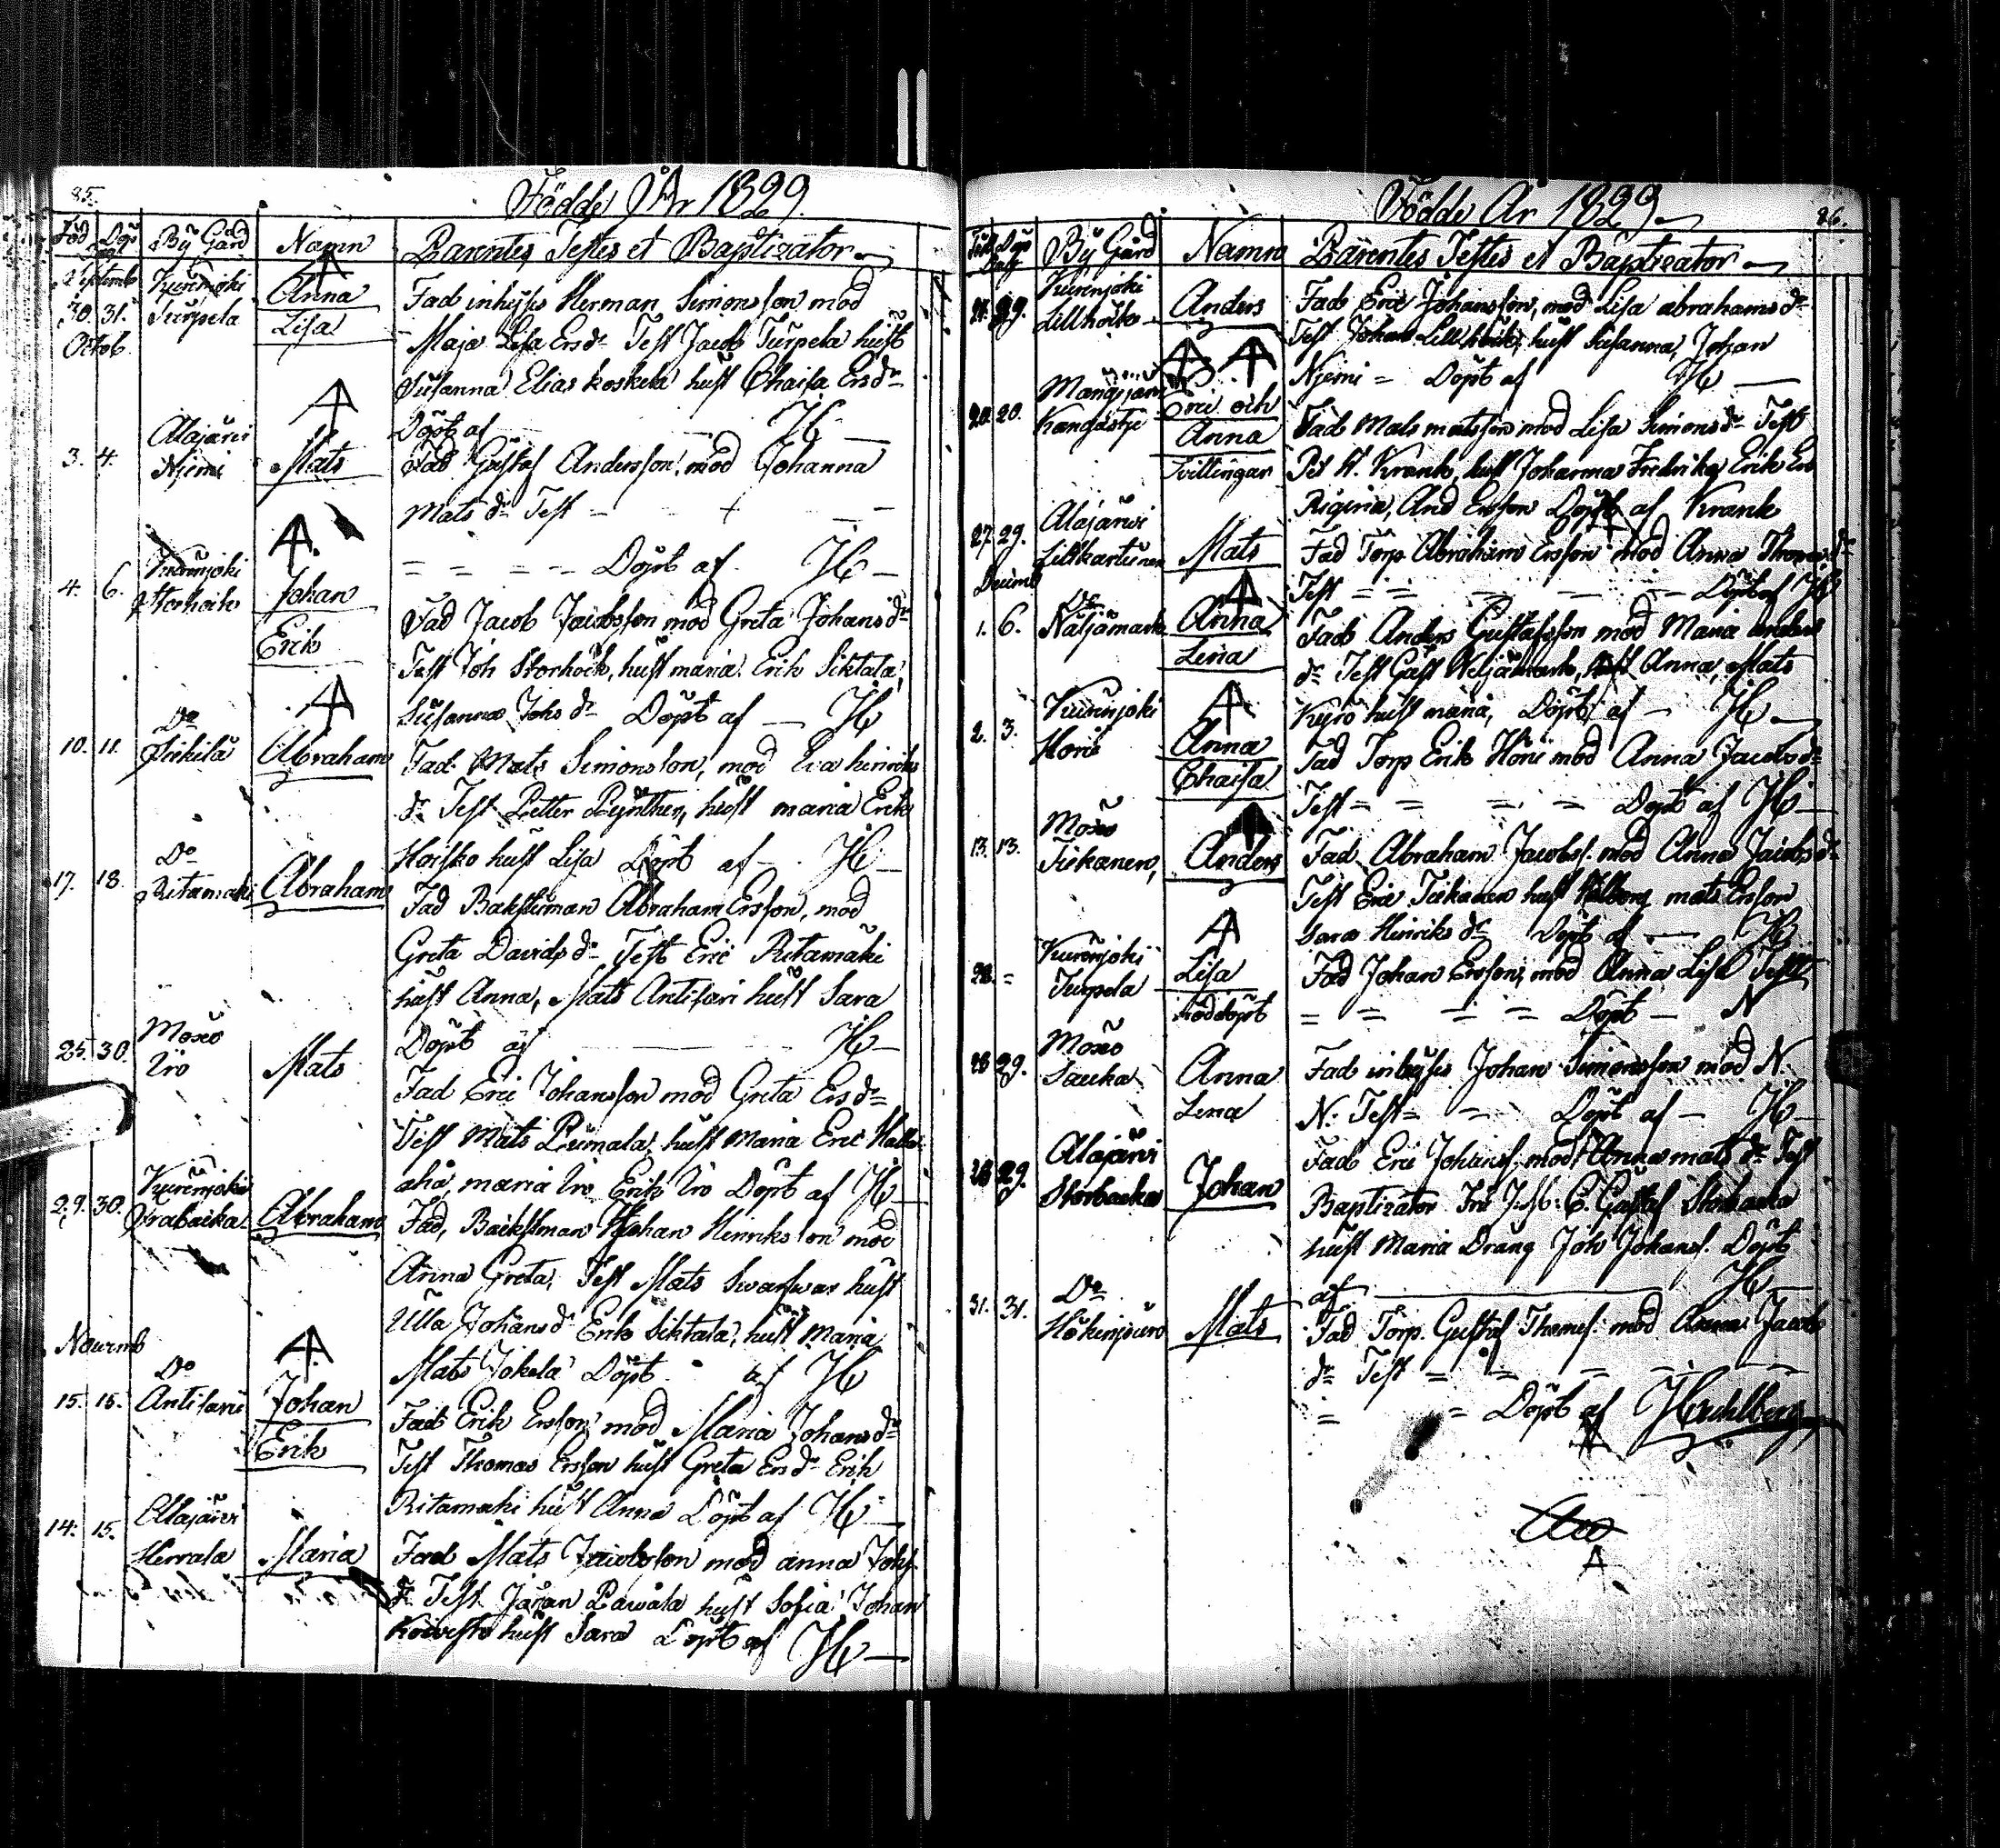 85.
Födde År 1829.
Föd Döp By Gård Namn Parentes, Testes et Baptizator
Septemb Kurenjoki Anna Fad inhyses Herman Simonsson mod
30. 31. Turpela Lisa Maja Lisa Ersdr Test Jacob Turpela hust
Octob. Susanna Elias Koskela hust Chaisa Ersdr
Döpt af H
3. 4. Alajärvi Njemi Mats Fad Gustaf Andersson, mod Johanna
Mats dr Test
Döpt af H
4. 6. Kurenjoki Storhöik Johan Erik Fad Jacob Jacobsson mod Greta Johansdr
Test Joh Storhöik, hust maria. Erik Siktala,
Susanna Johs dr Döpt af H
10. 11. Do Abraham Fad Mats Simonsson, mod Eva hinriks
dr Test Petter hust maria Erik
hust Lisa Döpt af H
17. 18. Do Ritamäki Abraham Fad Bakstuman Abraham Ersson, mod
Greta Davidsdr Test Eric Ritamäki
hust Anna, Mats Antisari hust Sara
Döpt af H
25. 30. Moso Iro Mats Fad Eric Johansson mod Greta Ersdr
Test Mats Pumala, hust Maria Eric
aho, maria Iro Erik Iro Döpt af H
29. 30. Kurenjoki Abraham Fad, Johan Hinriksson mod
Anna Greta, Test Mats hust
Ulla Johansdr Erik Siktala, hust Maria
Mats Jokela Döpt af H
Novemb
15. 15. Do Antisari Johan Erik Fad Erik Ersson mod Maria Johansdr
Test Thomas Ersson hust Greta Ersdr Erik
Ritamäki hust Anna Döpt af H
14. 15. Alajärvi Herrala Maria Fad Mats Jacobsson mod anna Johs
dr Test. Jöran Pawåla hust Sofia Johan
Koivisto hust Sara Döpt af H
Födde År 1829 86.
Döp By Gård Namn Parentes Testes et Baptizator
29. Kurenjoki Lillhöik Anders Fad Eric Johansson, mod Lisa abrahamsdr
Test Johan Lillhöik, hust Susanna, Johan
Njemi Döpt af H
20. 20. Kangastje Eric och Anna Tvillingar Fad Mats matsson mod Lisa Simonsdr Test
Pet H. Krank, hust Johanna Fredrika, Erik Ers
Rigina, And Ersson Döpt af Krank
27. 29. Alajärvi Lillkartunen Mats Fad Torp Abraham Ersson mod Anna Thomasdr
Decemb Test Döpt af H
1. 6. Do Anna Lena Fad Anders Gustafsson mod Maria anders
dr Test Gust hust Anna, Mats
Kyrö hust maria, Döpt af H
2. 3. Kurenjoki Höni Anna Chaisa Fad Torp Erik Höni mod Anna Jacobsdr
Test Döpt af H
13. 13. Moso Tiskanen, Anders Fad Abraham Jacobss. mod Anna Jacobsdr
Test Eric Tiskanen hust Walborg mats Ersson
Sara Hinriksdr Döpt af H
28. Kurenjoki Turpela Lisa Nöddöpt Fad Johan Ersson, mod Anna Lisa Test
Döpt N
28 29. Moso Sauka Anna Lena Fad inhyses Johan Simonsson mod N.
N. Test Döpt af H
28 29. Alajärvi Storbacka Johan Fad Eric Johanss. mod Anna mats dr Test
Baptizator Fru J. H. C. Gustaf Storbacka
hust Maria Dräng Joh Johanss. Döpt
af H
31. 31. Do Mats Fad Torp. Gustaf Thomss. mod Anna Jacobs
dr Test
Döpt af